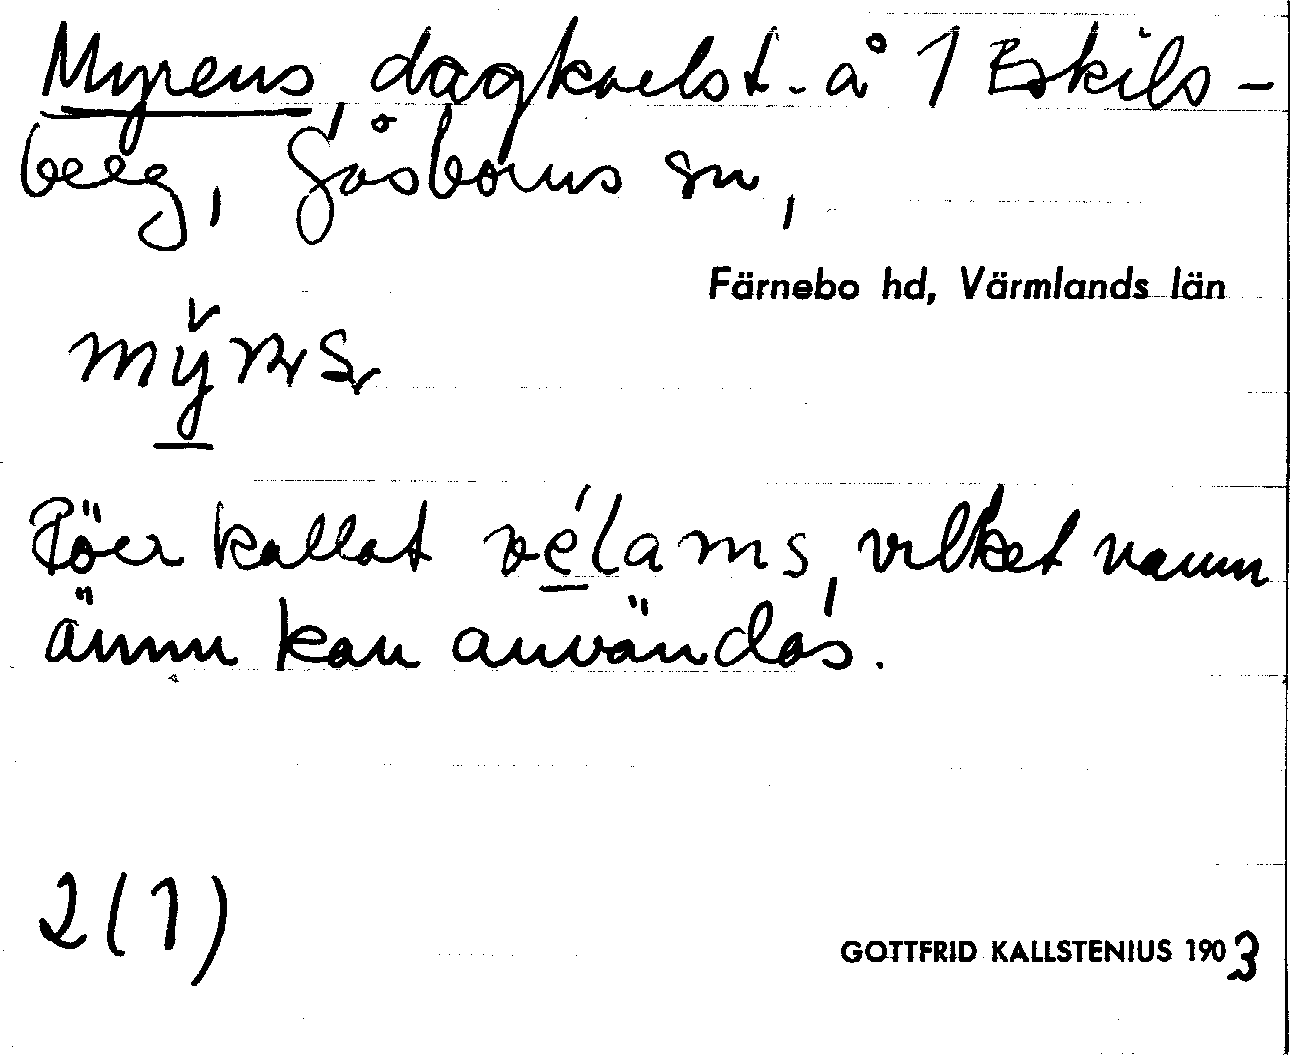 Myrens, dagkarlst. å 1 Eskils-
berg, Gåsborns sn,
Färnebo hd, Värmlands län
Förr kallat vélams, vilket namn
ännu kan användas.
2(1)
GOTTFRID KALLSTENIUS 1903